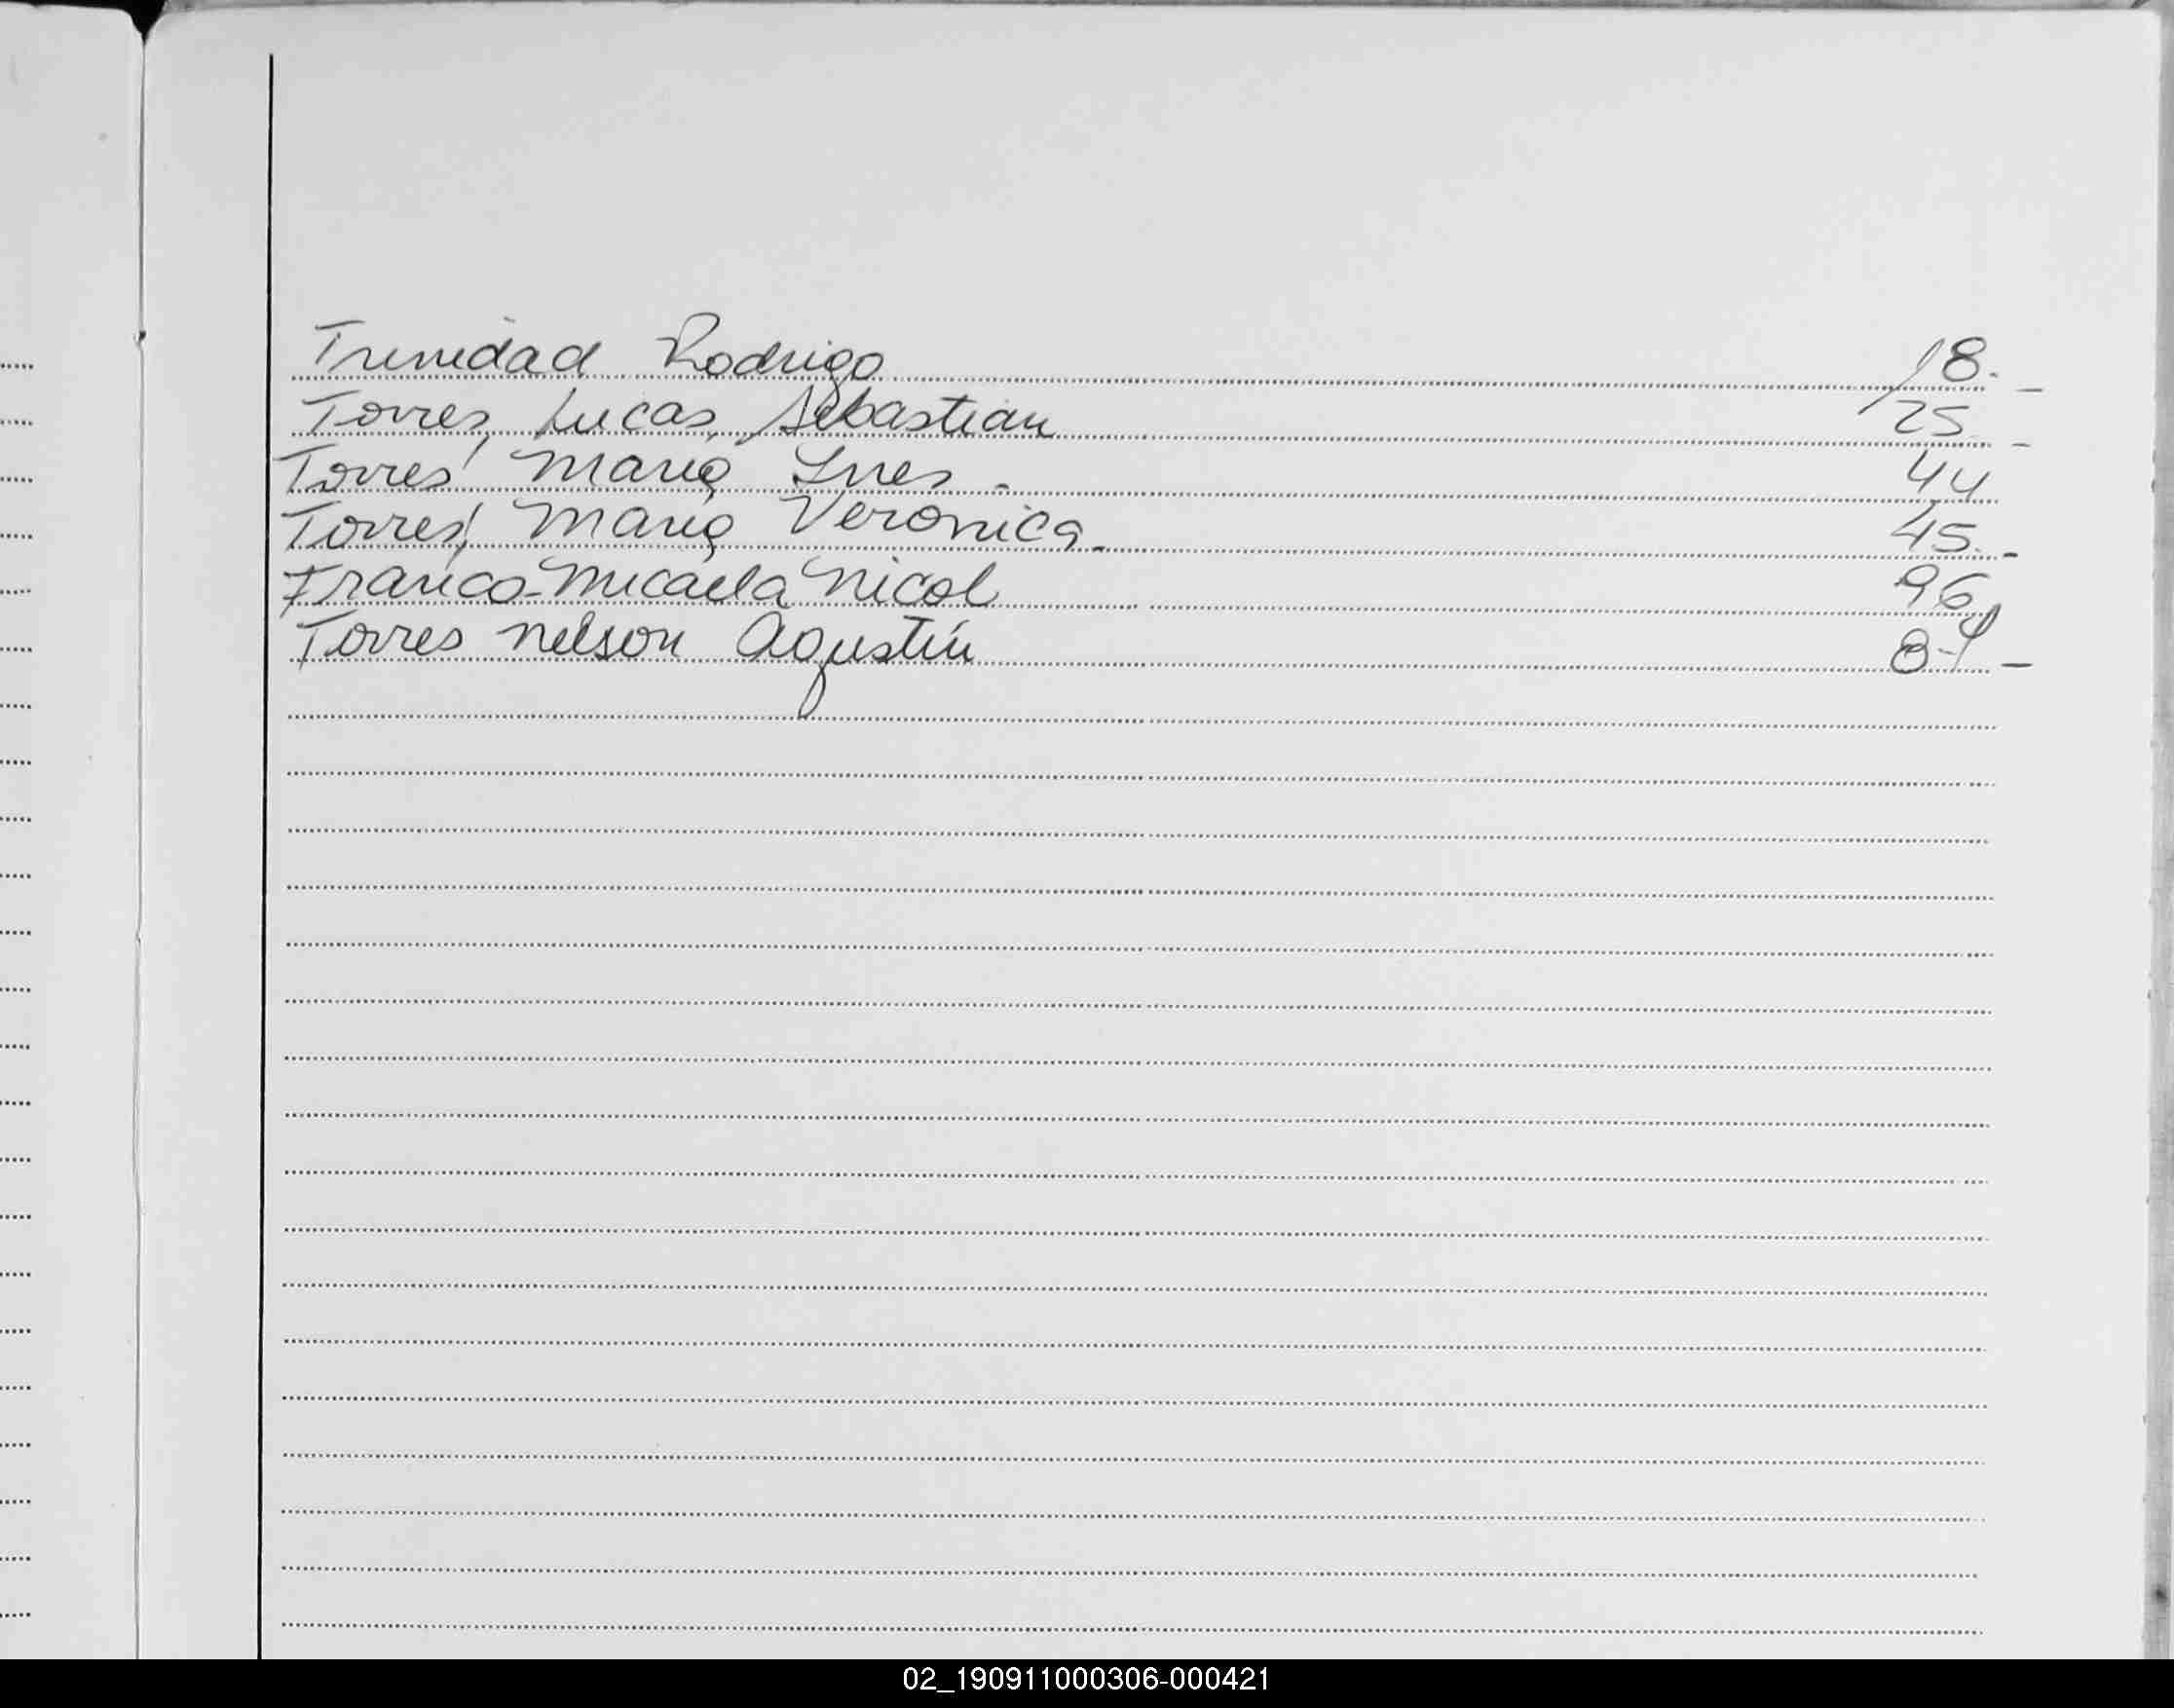 Trinidad Rodrigo 18. -
Torres, Lucas, Sebastian 25 -
Torres, Maria Ines - 44
Torres, Maria Veronica - 45. -
Franco - Micaela Nicol 96
Torres Nelson Agustín -
02_190911000306-000421